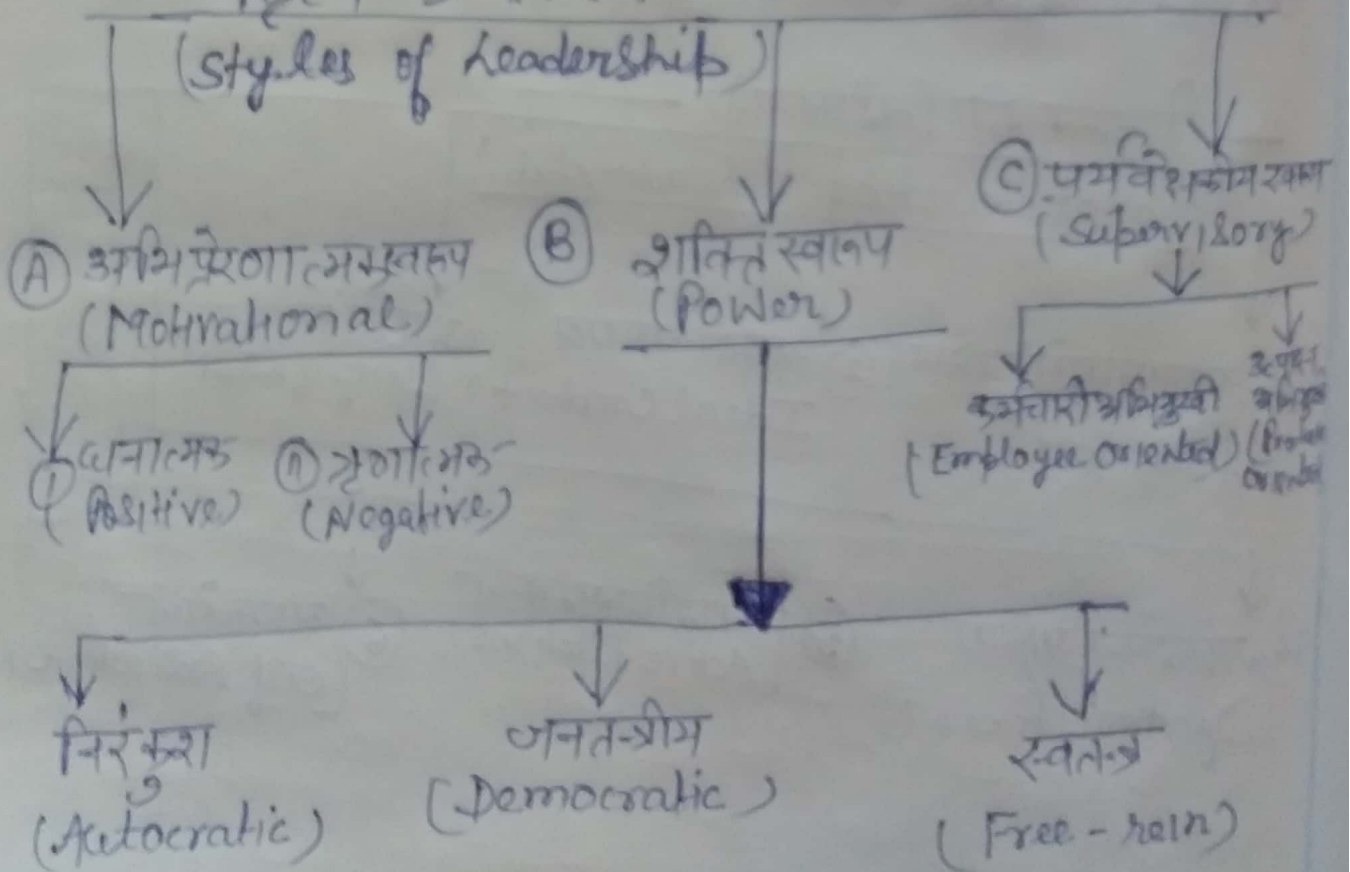 (Styles of Leadership)
(A) अभिप्रेरणात्मक स्वरूप
(Motivational)
(i) धनात्मक
(Positive)
(ii) ऋणात्मक
(Negative)
(B) शक्ति स्वरूप
(Power)
(C) पर्यवेक्षकीय स्वरूप
(Supervisory)
कर्मचारी अभिमुखी
(Employee oriented)
निरंकुश
(Autocratic)
जनतन्त्रीय
(Democratic)
स्वतन्त्र
(Free-rein)